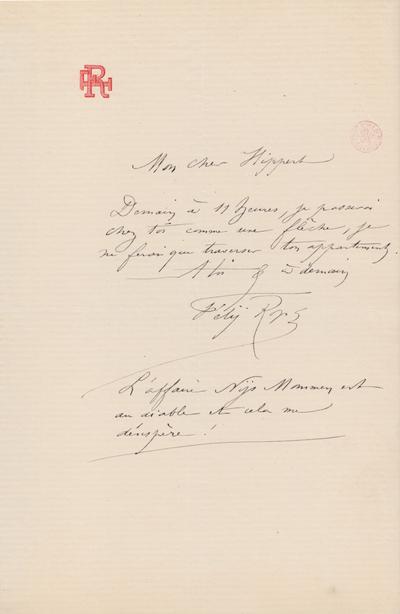 FR
Mon cher Hippert
Demain à 11 heures, je passerai
chez toi comme une flèche, je
ne ferai que traverser ton appartement.
A toi & à demain
Fély Rops
L'affaire Nijs Mommen est
au diable et cela me
désespère !